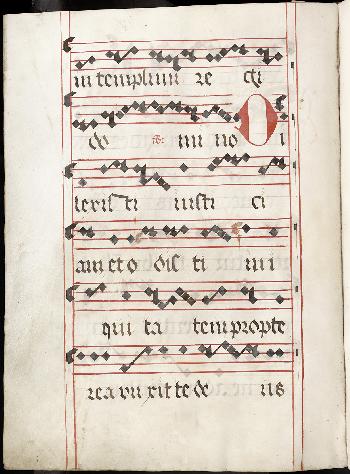 in templum re cti
do ni no D i
lexis ti iusti ci
am et o dis ti ini
qui ta tem propte
rea vn xit te de us